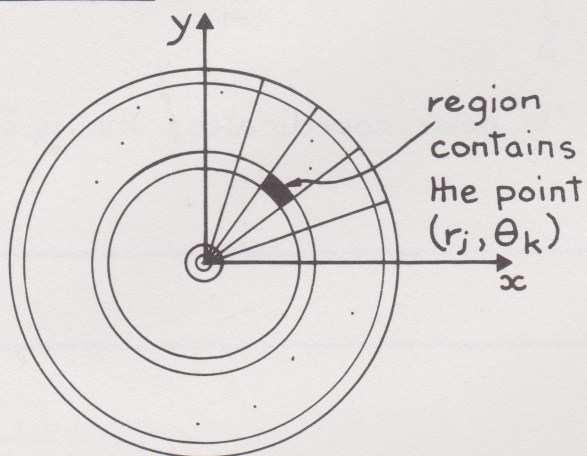 y
region
contains
the point
(rj, θk)
x